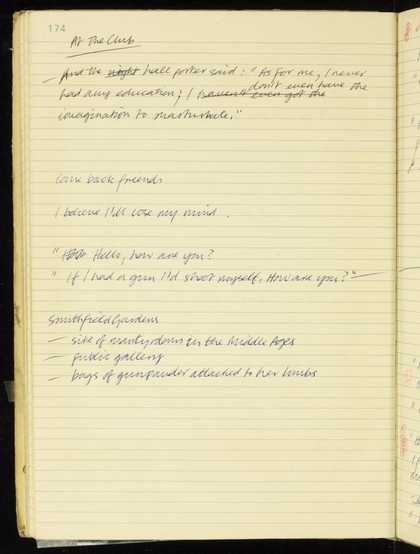 174
At The Club
— And the night hall porter said: "As for me, I never
had any education; I haven't even got the don't even have the
imagination to masturbate."
Come back friends
I believe I'll lose my mind.
" Hello, how are you?
" If I had a gun I'd shoot myself. How are you?" —
Smithfield Gardens
— site of martyrdoms in the Middle Ages
— public gallery
— bags of gunpowder attached to her limbs